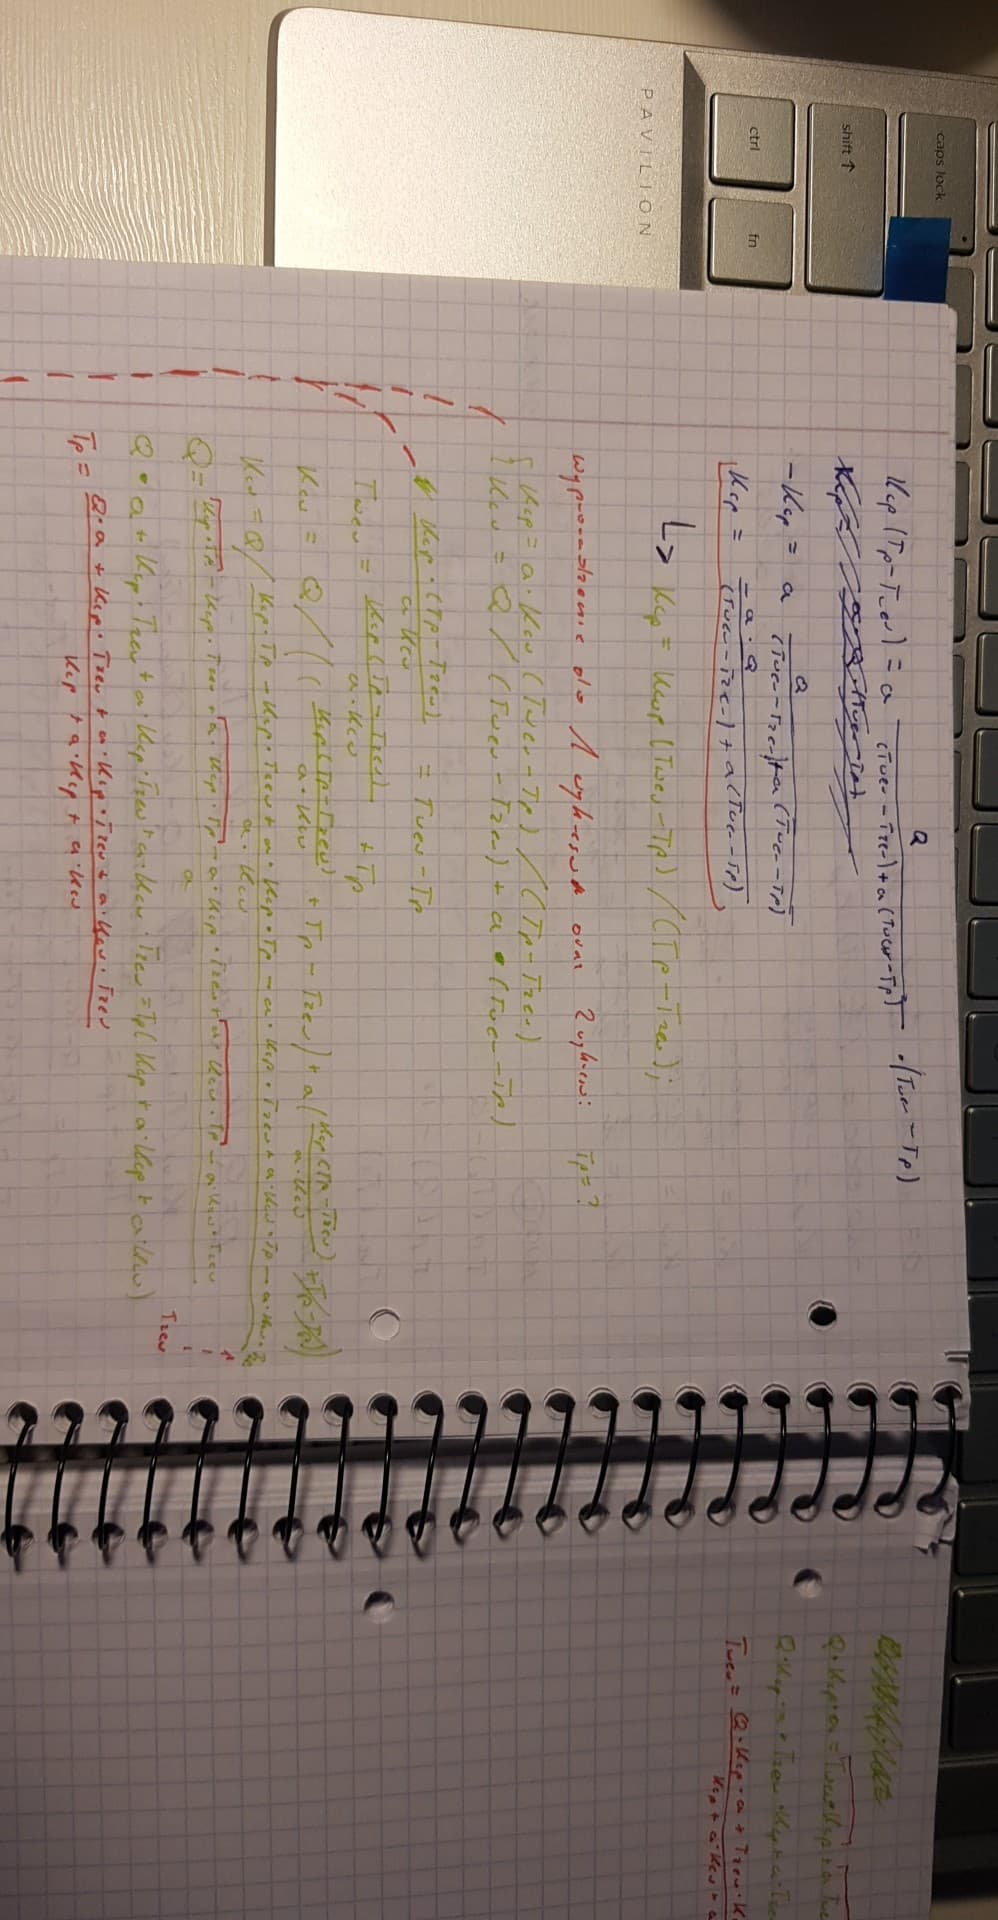 caps lock
shift ↑
ctrl
fn
PAVILION
Kcp (Tp - Twew) = a Q / ((Twew - Tzew) + a (Twew - Tp)) · (Twew - Tp)
-Kcp = a Q / ((Twew - Tzew) + a (Twew - Tp))
Kcp = -a · Q / ((Twew - Tzew) + a (Twew - Tp))
↳ Kcp = Kcwp (Twew - Tp) / (Tp - Tzew);
wyprowadzenie do 1 wykresu oraz 2 wykresu: Tp = ?
Kcp = a · Kcw (Twew - Tp) / (Tp - Tzew)
Kcw = Q / (Twew - Tzew) + a · (Twew - Tp)
Kcp · (Tp - Tzew) / (a Kcw) = Twew - Tp
Twew = Kcp (Tp - Tzew) / (a · Kcw) + Tp
Kcw = Q / ((Kcp (Tp - Tzew) / (a · Kcw) + Tp - Tzew) + a (Kcp (Tp - Tzew) / (a · Kcw) + Tp - Tp))
Kcw = Q / (Kcp · Tp - Kcp · Tzew + a · Kcp · Tp - a · Kcp · Tzew + a · Kcw · Tp - a · Kcw · Tzew) / (a · Kcw)
Q = (Kcp · Tp - Kcp · Tzew + a · Kcp · Tp - a · Kcp · Tzew + a · Kcw · Tp - a · Kcw · Tzew) / a
Tzew
Q · a + Kcp · Tzew + a · Kcp · Tzew + a · Kcw · Tzew = Tp (Kcp + a · Kcp + a · Kcw)
Tp = (Q · a + Kcp · Tzew + a · Kcp · Tzew + a · Kcw · Tzew) / (Kcp + a · Kcp + a · Kcw)
Q · Kcp · a = Twew · Kcp + a · Twe
Q · Kcp · a + Tzew · Kcp + a · Tze
Twew = (Q · Kcp · a + Tzew · K) / (Kcp + a · Kcw + a